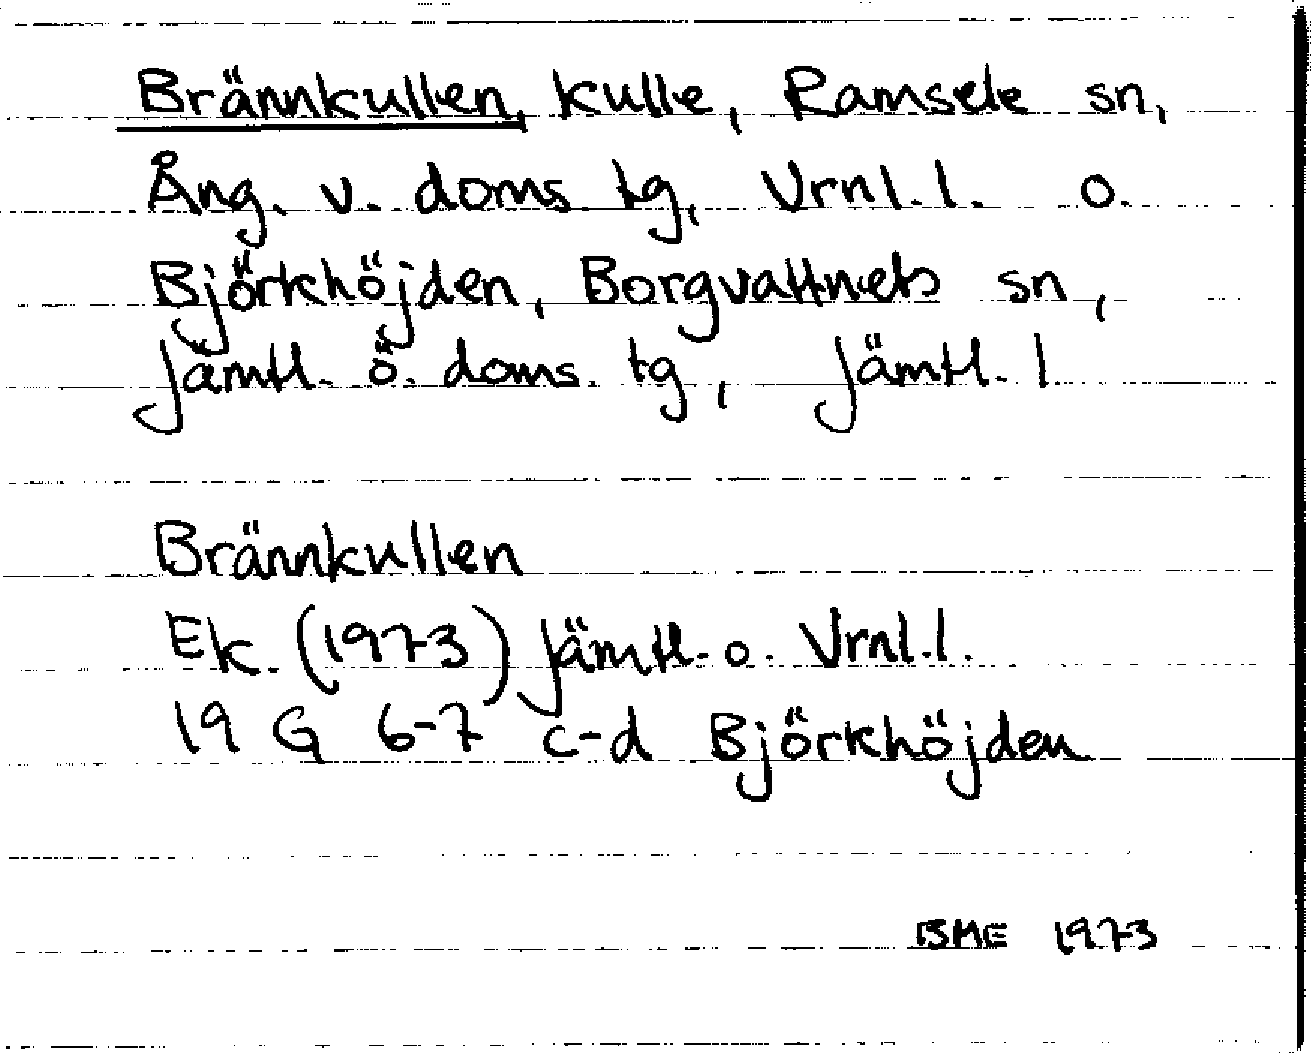 Brännkullen, kulle, Ramsele sn,
Ång. v. doms tg, Vrnl. l. o.
Björkhöjden, Borgvattnets sn,
Jämtl. ö. doms. tg, Jämtl. l
Brännkullen
Ek. (1973) Jämtl. o. Vrnl. l.
19 G 6-7 c-d Björkhöjden
BME 1973